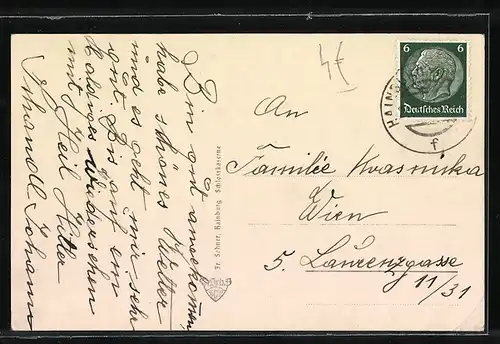 Bin gut angekommen
habe schönes Wetter
und es geht mir sehr
gut. Bis auf ein
baldiges Wiedersehen
mit Heil Hitler
Johann
Fr. Sehner, Hainburg, Schlosskaserne
4€
6 6
Deutsches Reich
HAINB
f
An
Familie Kvasnicka
Wien
5. Laurenzgasse
11/31